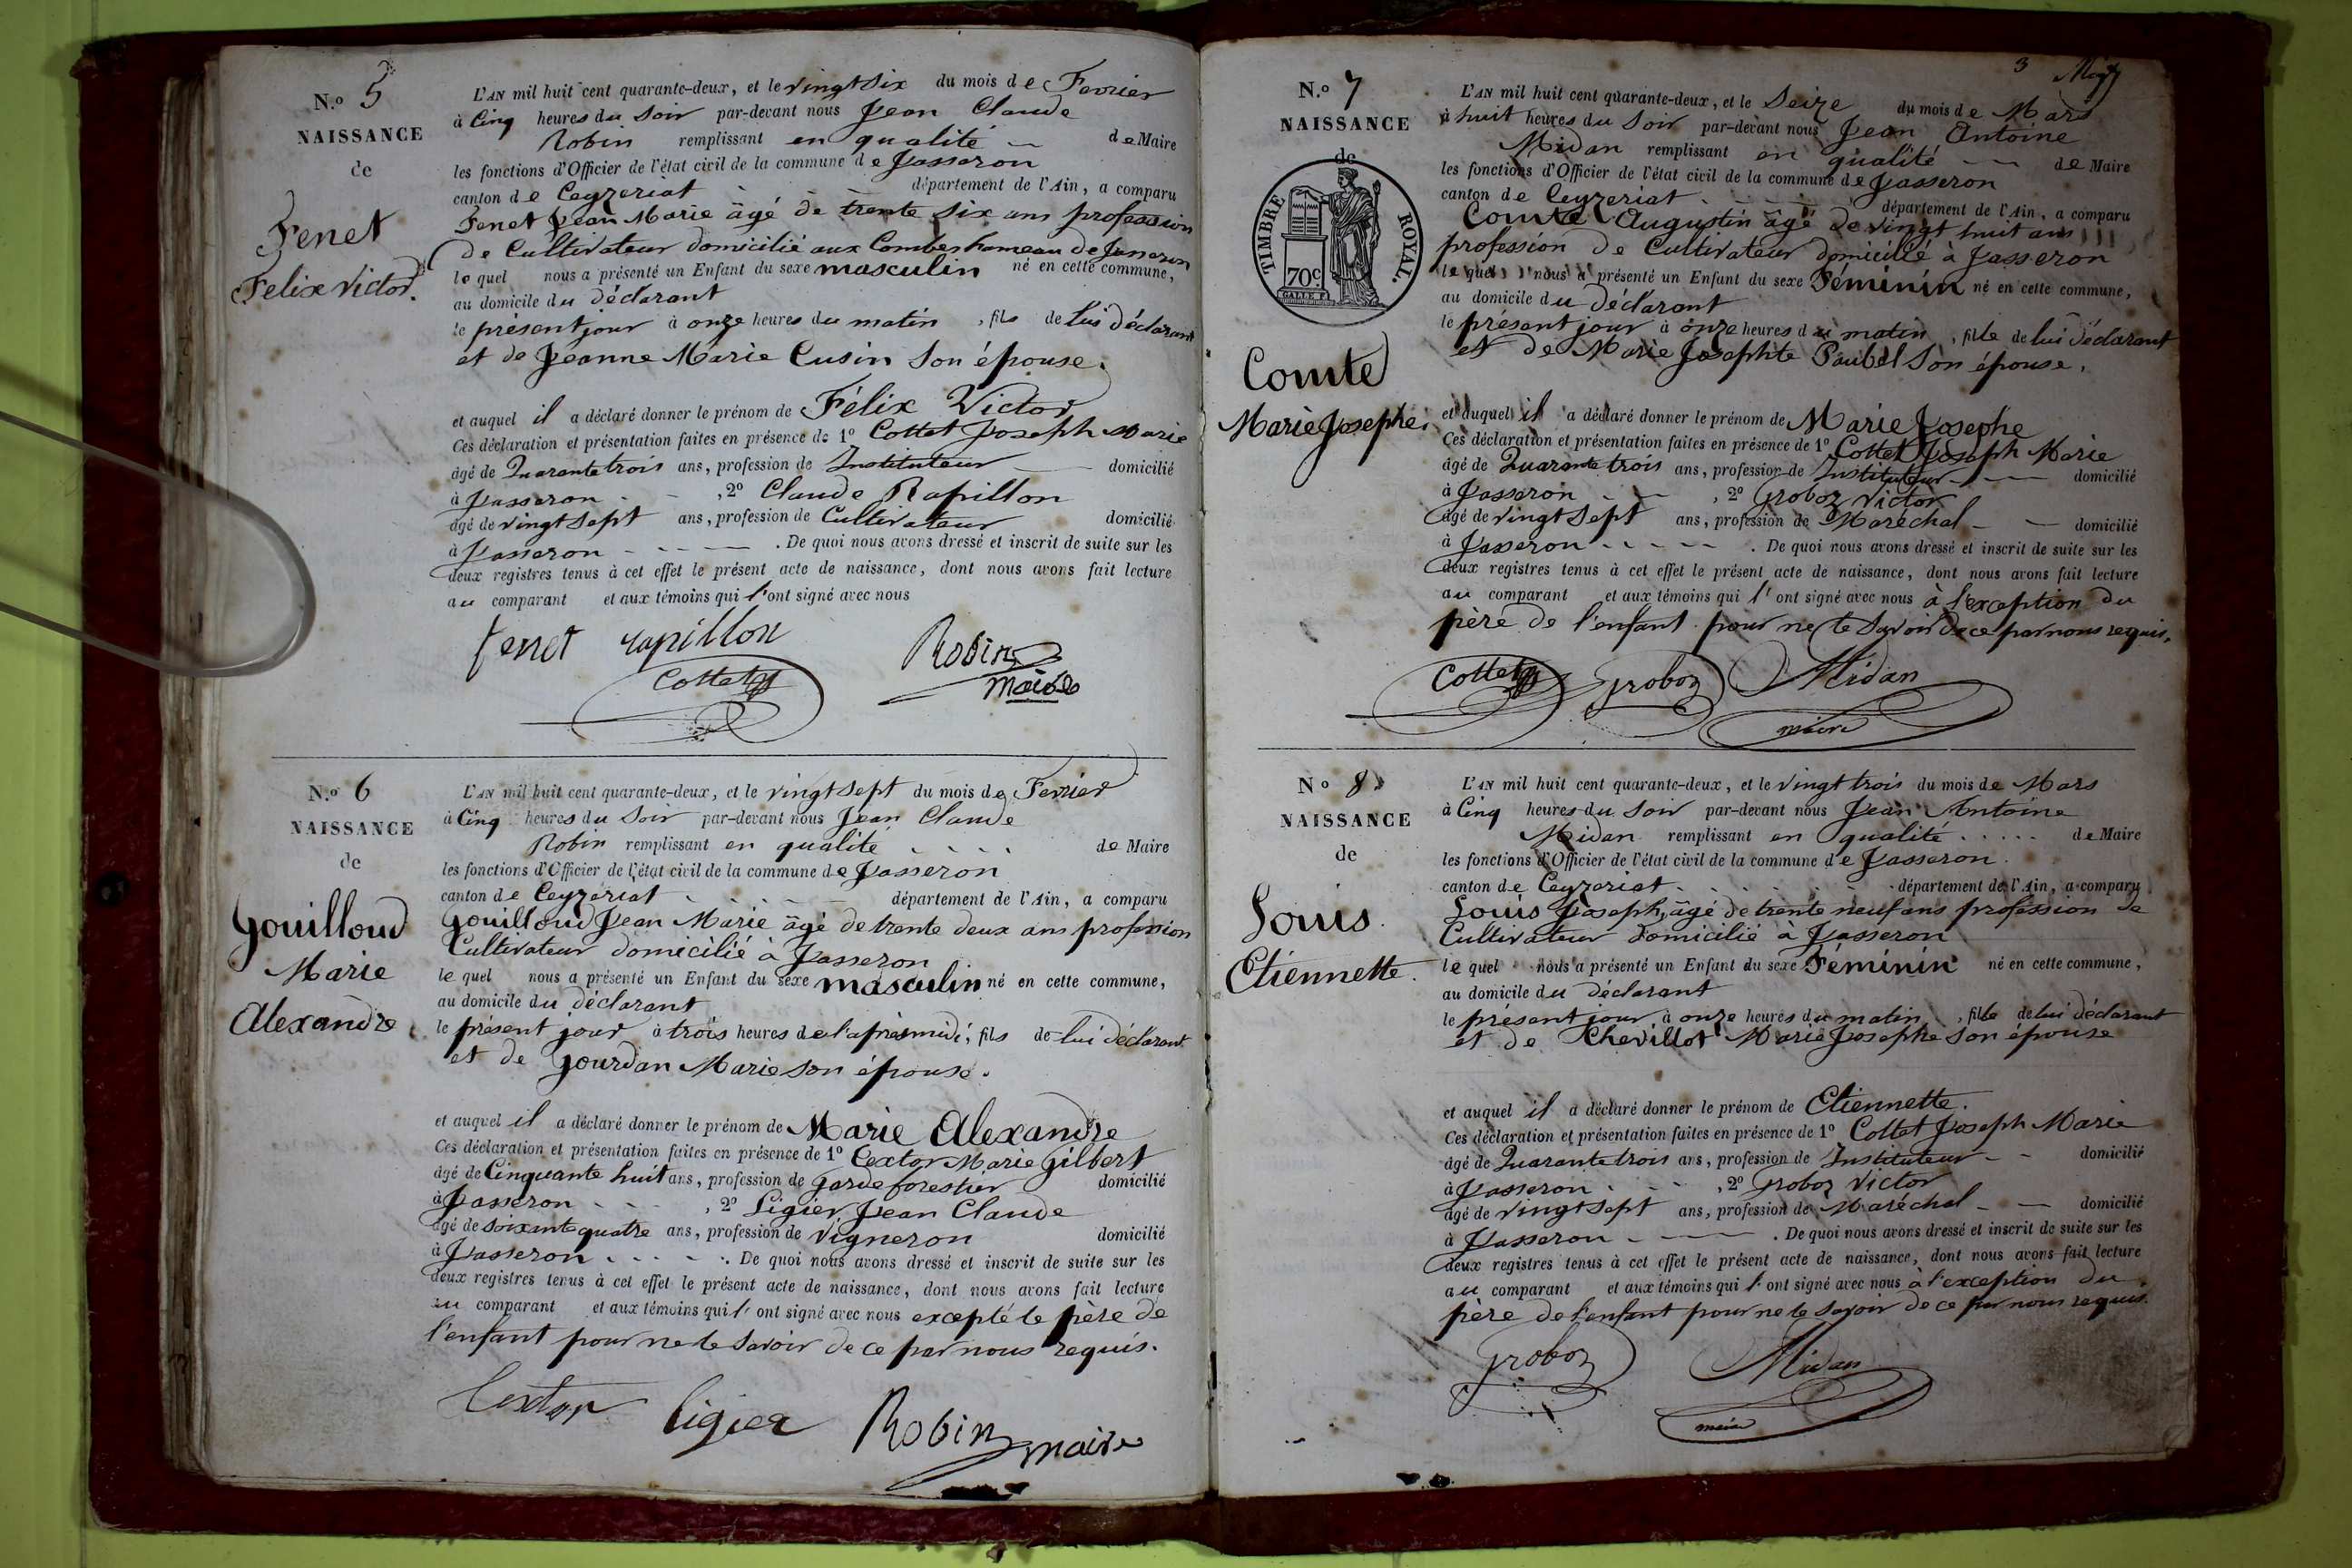 N.o 5
NAISSANCE
de
Fenet
Felix Victor.
L'AN mil huit cent quarante-deux, et le vingt Six du mois de Fevrier
à Cinq heures du Soir par-devant nous Jean Claude
Robin remplissant en qualité de Maire
les fonctions d'Officier de l'état civil de la commune de Jasseron
canton de Ceyzeriat département de l'Ain, a comparu
Fenet Jean Marie âgé de trente six ans profession
de Cultivateur domicilié aux Combes hameau de Jasseron
le quel nous a présenté un Enfant du sexe masculin né en cette commune,
au domicile du déclarant
le présent jour à onze heures du matin, fils de lui déclarant
et de Jeanne Marie Cusin Son épouse.
et auquel il a déclaré donner le prénom de Félix Victor
Ces déclaration et présentation faites en présence de 1o Cottet Joseph Marie
âgé de Quarante trois ans, profession de Instituteur domicilié
à Jasseron , 2o Claude Rapillon
âgé de vingt Sept ans, profession de Cultivateur domicilié
à Jasseron . De quoi nous avons dressé et inscrit de suite sur les
deux registres tenus à cet effet le présent acte de naissance, dont nous avons fait lecture
au comparant et aux témoins qui l'ont signé avec nous
fenet rapillon Robin
Cottet maire
N.o 6
NAISSANCE
de
Gouilloud
Marie
Alexandre
L'AN mil huit cent quarante-deux, et le vingt Sept du mois de Fevrier
à Cinq heures du Soir par-devant nous Jean Claude
Robin remplissant en qualité de Maire
les fonctions d'Officier de l'état civil de la commune de Jasseron
canton de Ceyzériat département de l'Ain, a comparu
Gouilloud Jean Marie âgé de trente deux ans profession
Cultivateur domicilié à Jasseron
le quel nous a présenté un Enfant du sexe masculin né en cette commune,
au domicile du déclarant
le présent jour à trois heures de l'après midi, fils de lui déclarant
et de Gourdan Marie son épouse.
et auquel il a déclaré donner le prénom de Marie Alexandre
Ces déclaration et présentation faites en présence de 1o Cextor Marie Gilbert
âgé de Cinquante huit ans, profession de garde forestier domicilié
à Jasseron , 2o Ligier Jean Claude
âgé de soixante quatre ans, profession de vigneron domicilié
à Jasseron . De quoi nous avons dressé et inscrit de suite sur les
deux registres tenus à cet effet le présent acte de naissance, dont nous avons fait lecture
au comparant et aux témoins qui l'ont signé avec nous excepté le père de
l'enfant pour ne le Savoir de ce par nous requis.
Cextor ligier Robin maire
3
N.o 7
NAISSANCE
de
TIMBRE ROYAL.
70c.
Comte
Marie Josephe.
L'AN mil huit cent quarante-deux, et le Seize du mois de Mars
à huit heures du Soir par-devant nous Jean Antoine
Midan remplissant en qualité de Maire
les fonctions d'Officier de l'état civil de la commune de Jasseron
canton de Ceyzeriat département de l'Ain, a comparu
Comte Augustin âgé de vingt huit ans
profession de Cultivateur domicilié à Jasseron
le quel nous a présenté un Enfant du sexe Féminin né en cette commune,
au domicile du déclarant
le présent jour à onze heures du matin, fille de lui déclarant
et de Marie Josephte Paubel Son épouse.
et auquel il a déclaré donner le prénom de Marie Josephe
Ces déclaration et présentation faites en présence de 1o Cottet Joseph Marie
âgé de Quarante trois ans, profession de Instituteur domicilié
à Jasseron , 2o Groboz Victor
âgé de vingt Sept ans, profession de Maréchal domicilié
à Jasseron . De quoi nous avons dressé et inscrit de suite sur les
deux registres tenus à cet effet le présent acte de naissance, dont nous avons fait lecture
au comparant et aux témoins qui l'ont signé avec nous à l'exception du
père de l'enfant pour ne le Savoir de ce par nous requis.
Cottet Groboz Midan
maire
No 8
NAISSANCE
de
Louis
Etiennette.
L'AN mil huit cent quarante-deux, et le vingt trois du mois de Mars
à Cinq heures du Soir par-devant nous Jean Antoine
Midan remplissant en qualité de Maire
les fonctions d'Officier de l'état civil de la commune de Jasseron.
canton de Ceyzeriat département de l'Ain, a comparu
Louis Joseph, âgé de trente neuf ans profession de
Cultivateur domicilié à Jasseron
le quel nous a présenté un Enfant du sexe Féminin né en cette commune,
au domicile du déclarant
le présent jour à onze heures du matin, fille de lui déclarant
et de Chevillot Marie Josephe Son épouse
et auquel il a déclaré donner le prénom de Etiennette.
Ces déclaration et présentation faites en présence de 1o Cottet Joseph Marie
âgé de Quarante trois ans, profession de Instituteur domicilié
à Jasseron , 2o Groboz Victor
âgé de vingt Sept ans, profession de Maréchal domicilié
à Jasseron . De quoi nous avons dressé et inscrit de suite sur les
deux registres tenus à cet effet le présent acte de naissance, dont nous avons fait lecture
au comparant et aux témoins qui l'ont signé avec nous à l'exception du
père de l'enfant pour ne le Savoir de ce par nous requis.
Groboz Midan
maire